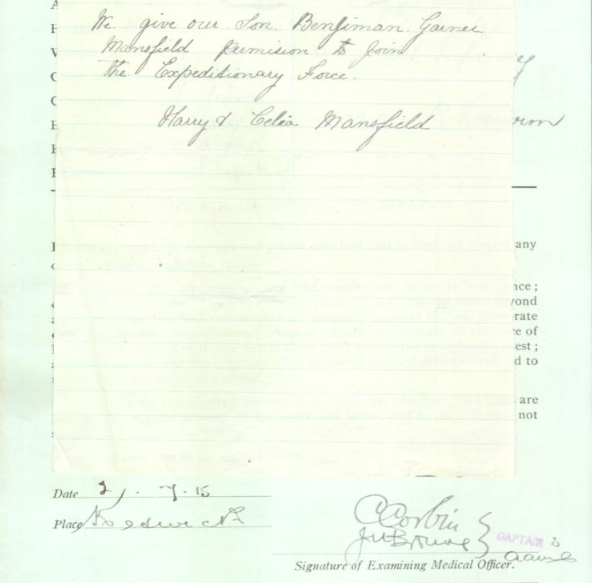 We give our Son. Benjiman. Garner
Mansfield permision to join
the Expeditionary Force.
Harry & Celia Mansfield
any
nce;
yond
rate
e of
est;
d to
are
not
Date
Place
C Corbin
CAPTAIN
Signature of Examining Medical Officer.